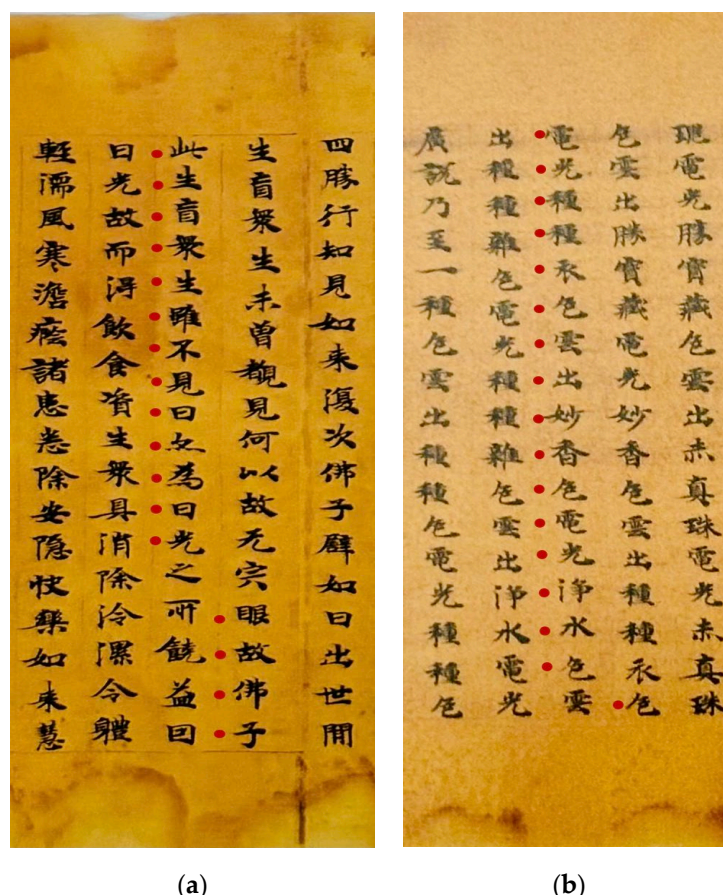 四勝行知見如来復次佛子譬如日出世間
生盲衆生未曾覩見何以故无宍眼故佛子
此生盲衆生雖不見日亦為日光之所饒益因
日光故而淂飲食資生衆具消除冷濕令軆
輕濡風寒澹癊諸患悉除安隐快樂如来慧
(a)
電光勝寶藏色雲出赤真珠電光赤真珠
色雲出勝寶藏電光妙香色雲出種種衣色
電光種種衣色雲出妙香色電光淨水色雲
出種種雜色電光種種雜色雲出淨水電光
廣説乃至一種色雲出種種色電光種種色
(b)